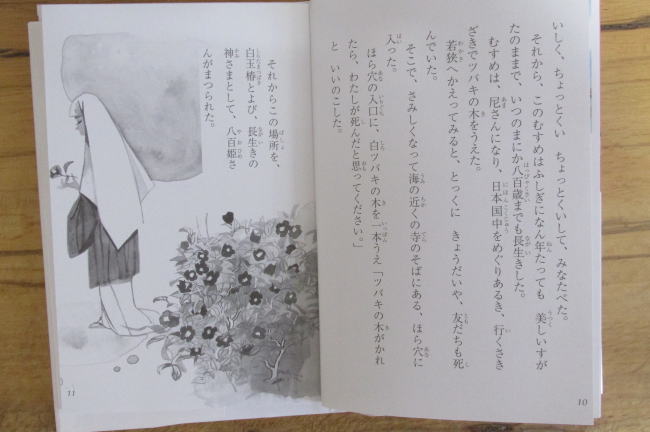 いしく、ちょっとくい　ちょっとくいして、みなたべた。
それから、このむすめはふしぎになん年たっても　美しいすが
たのままで、いつのまにか八百歳までも長生きした。
むすめは、尼さんになり、日本国中をめぐりあるき、行くさき
ざきでツバキの木をうえた。
若狭へかえってみると、とっくに　きょうだいや、友だちも死
んでいた。
そこで、さみしくなって海の近くの寺のそばにある、ほら穴に
入った。
ほら穴の入口に、白ツバキの木を一本うえ「ツバキの木がかれ
たら、わたしが死んだと思ってください。」
と　いいのこした。
10
それからこの場所を、
白玉椿とよび、長生きの
神さまとして、八百姫さ
んがまつられた。
11